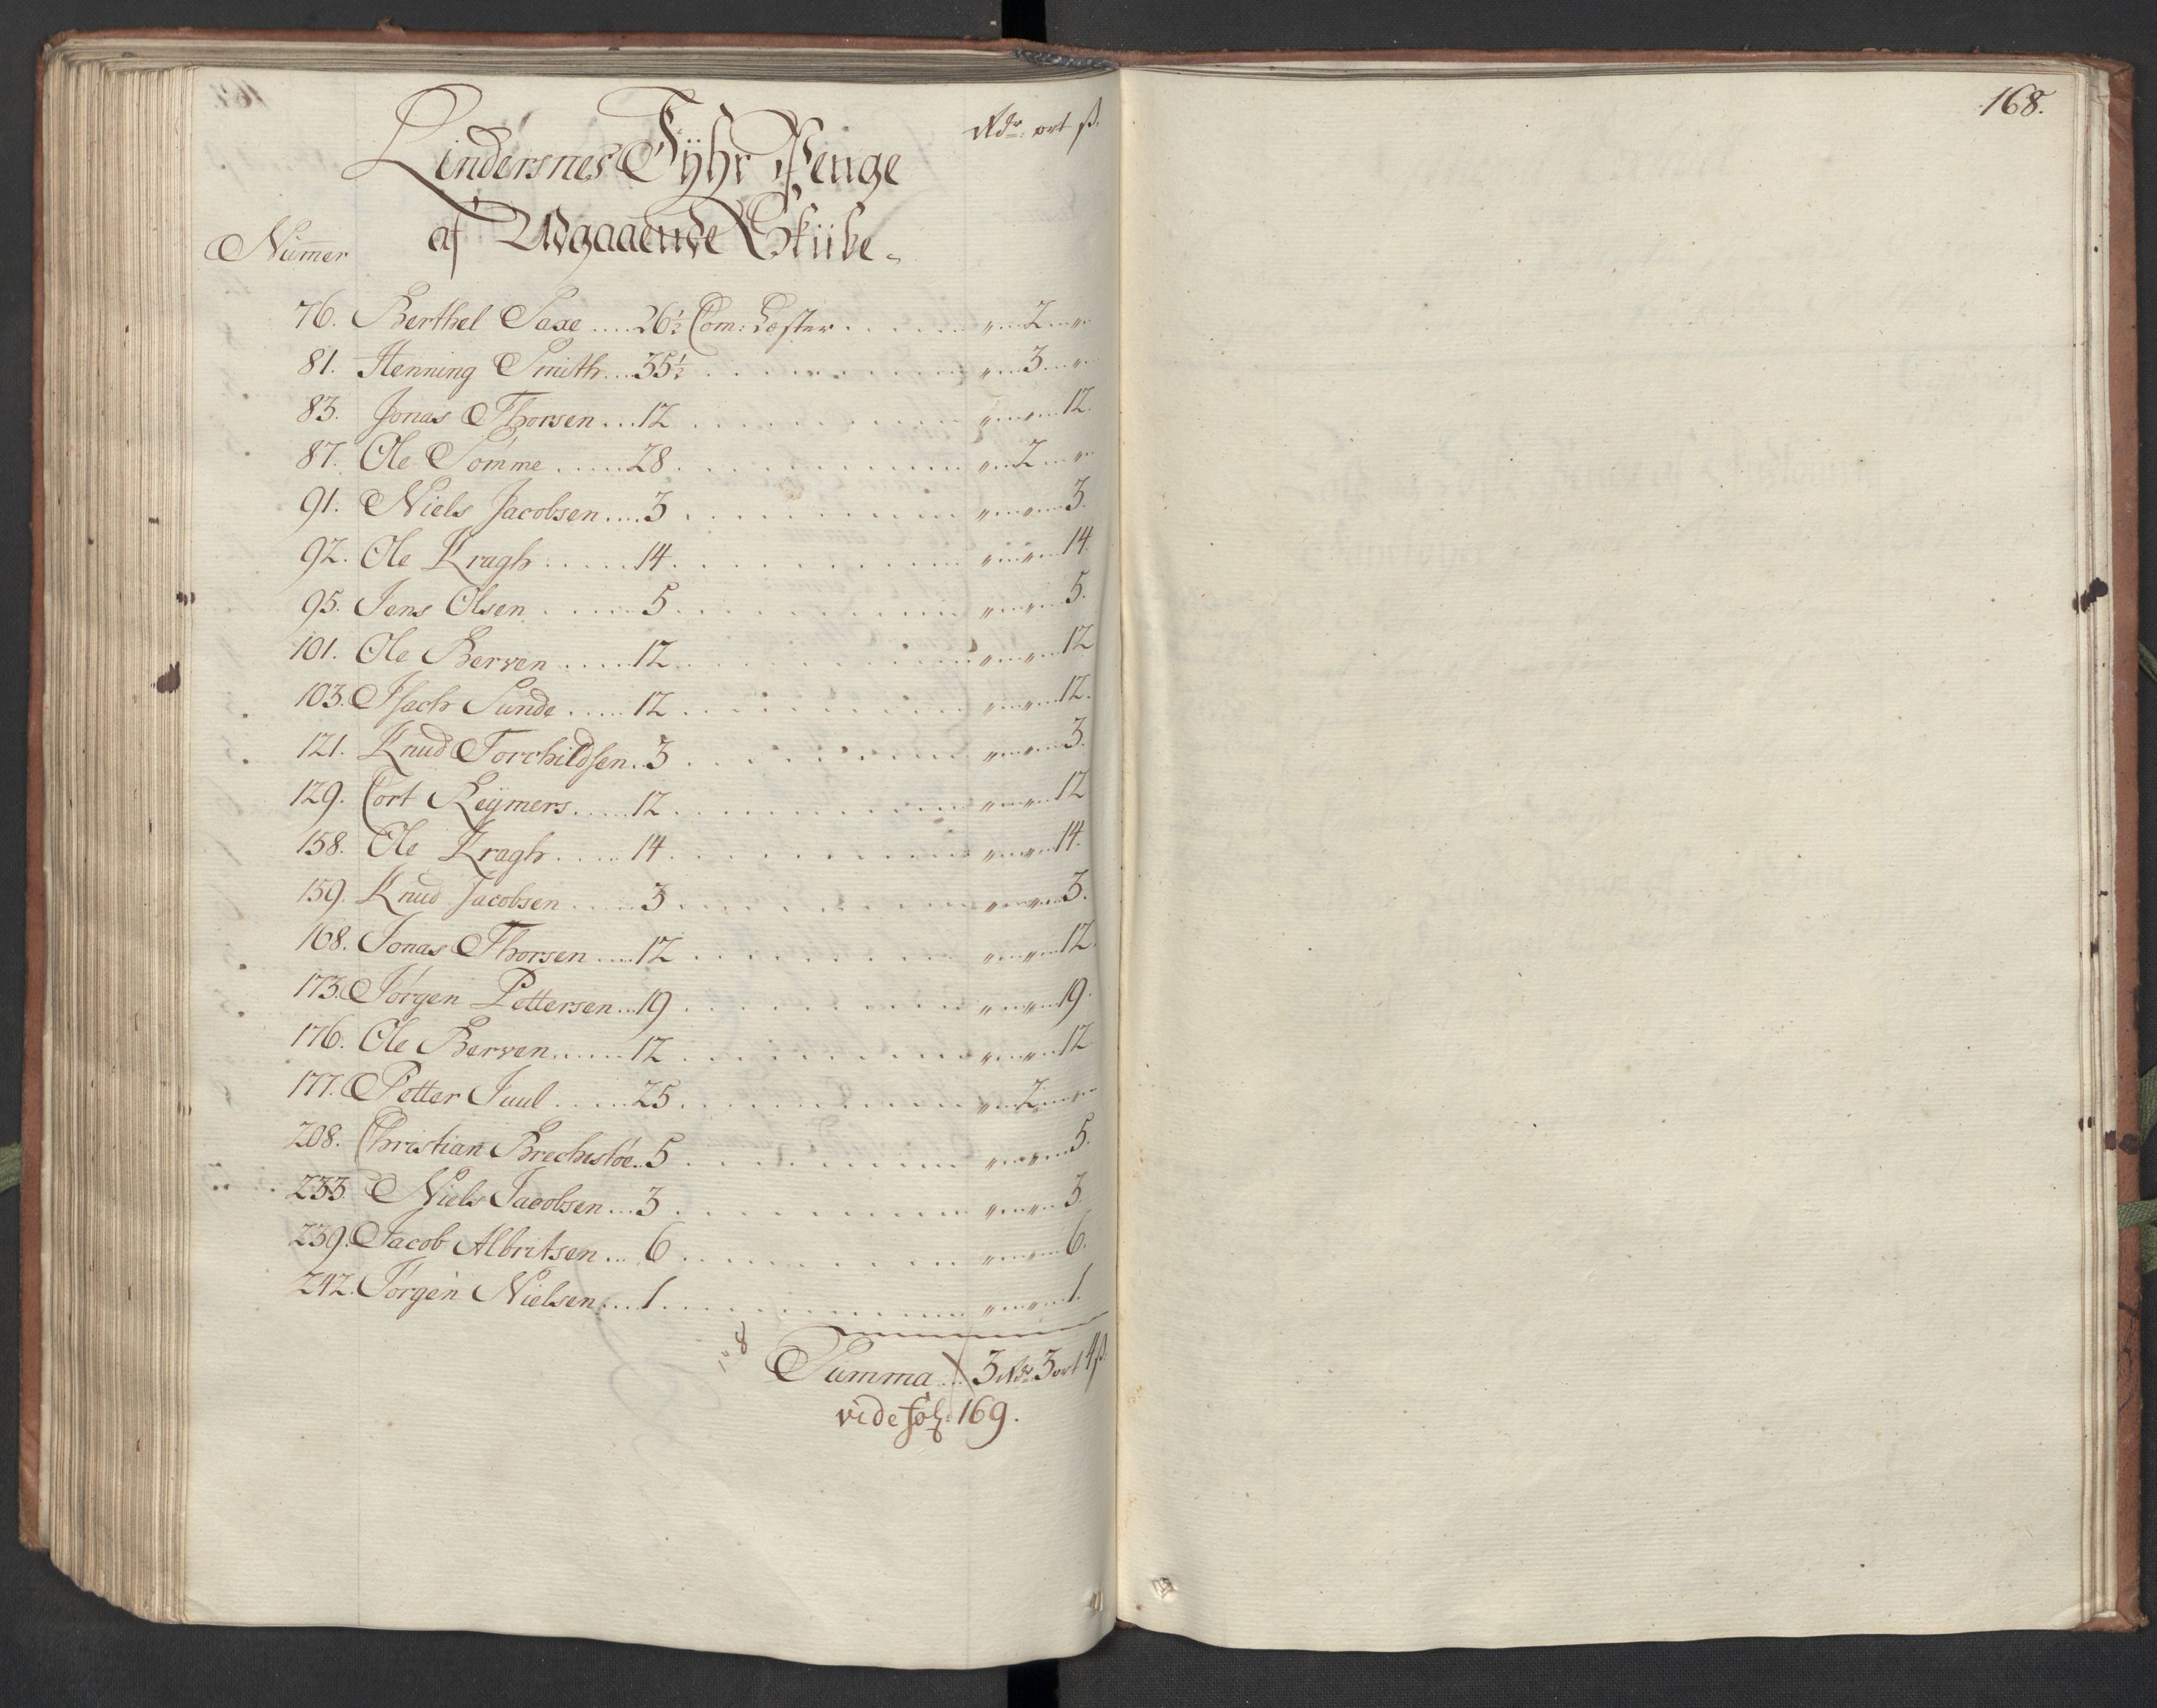 168.
Rdr: ort ß.
Lindersnes Fÿhr Penge
af Udgaaende Skiibe
Numer
76. Berthel Saxe .... 26½ Com: Læster . . . . . . " .. 2 .. "
81. Henning Smith ... 35½ . . . . . . " .. 3 .. "
83. Jonas Thorsen ... 12 . . . . . . " .. " .. 12.
87. Ole Sømme ..... 28 . . . . . . " .. 2 .. "
91. Niels Jacobsen .... 3 . . . . . . " .. " .. 3.
92. Ole Kragh ..... 14 . . . . . . " .. " .. 14
95. Jens Olsen ..... 5 . . . . . . " .. " .. 5.
101. Ole Berven ..... 12 . . . . . . " .. " .. 12
103. Isach Sunde ..... 12 . . . . . . " .. " .. 12.
121. Knud Torchildsen .. 3 . . . . . . " .. " .. 3.
129. Cort Reÿmers ..... 12 . . . . . . " .. " .. 12
158. Ole Kragh ..... 14 . . . . . . " .. " .. 14.
159. Knud Jacobsen ..... 3 . . . . . . " .. " .. 3.
168. Jonas Thorsen .... 12 . . . . . . " .. " .. 12.
173. Jørgen Pettersen ... 19 . . . . . . " .. " .. 19.
176. Ole Berven ...... 12 . . . . . . " .. " .. 12.
177. Petter Juul ..... 25 . . . . . . " .. 2 .. "
208. Christian Brechestøe .. 5 . . . . . . " .. " .. 5.
233. Niels Jacobsen ... 3 . . . . . . " .. " .. 3.
239. Jacob Albritsen ... 6 . . . . . . " .. " .. 6.
242. Jørgen Nielsen .... 1 . . . . . . " .. " .. 1.
Summa ... 3 Rdr 3 ort 4 ß.
vide fol: 169.